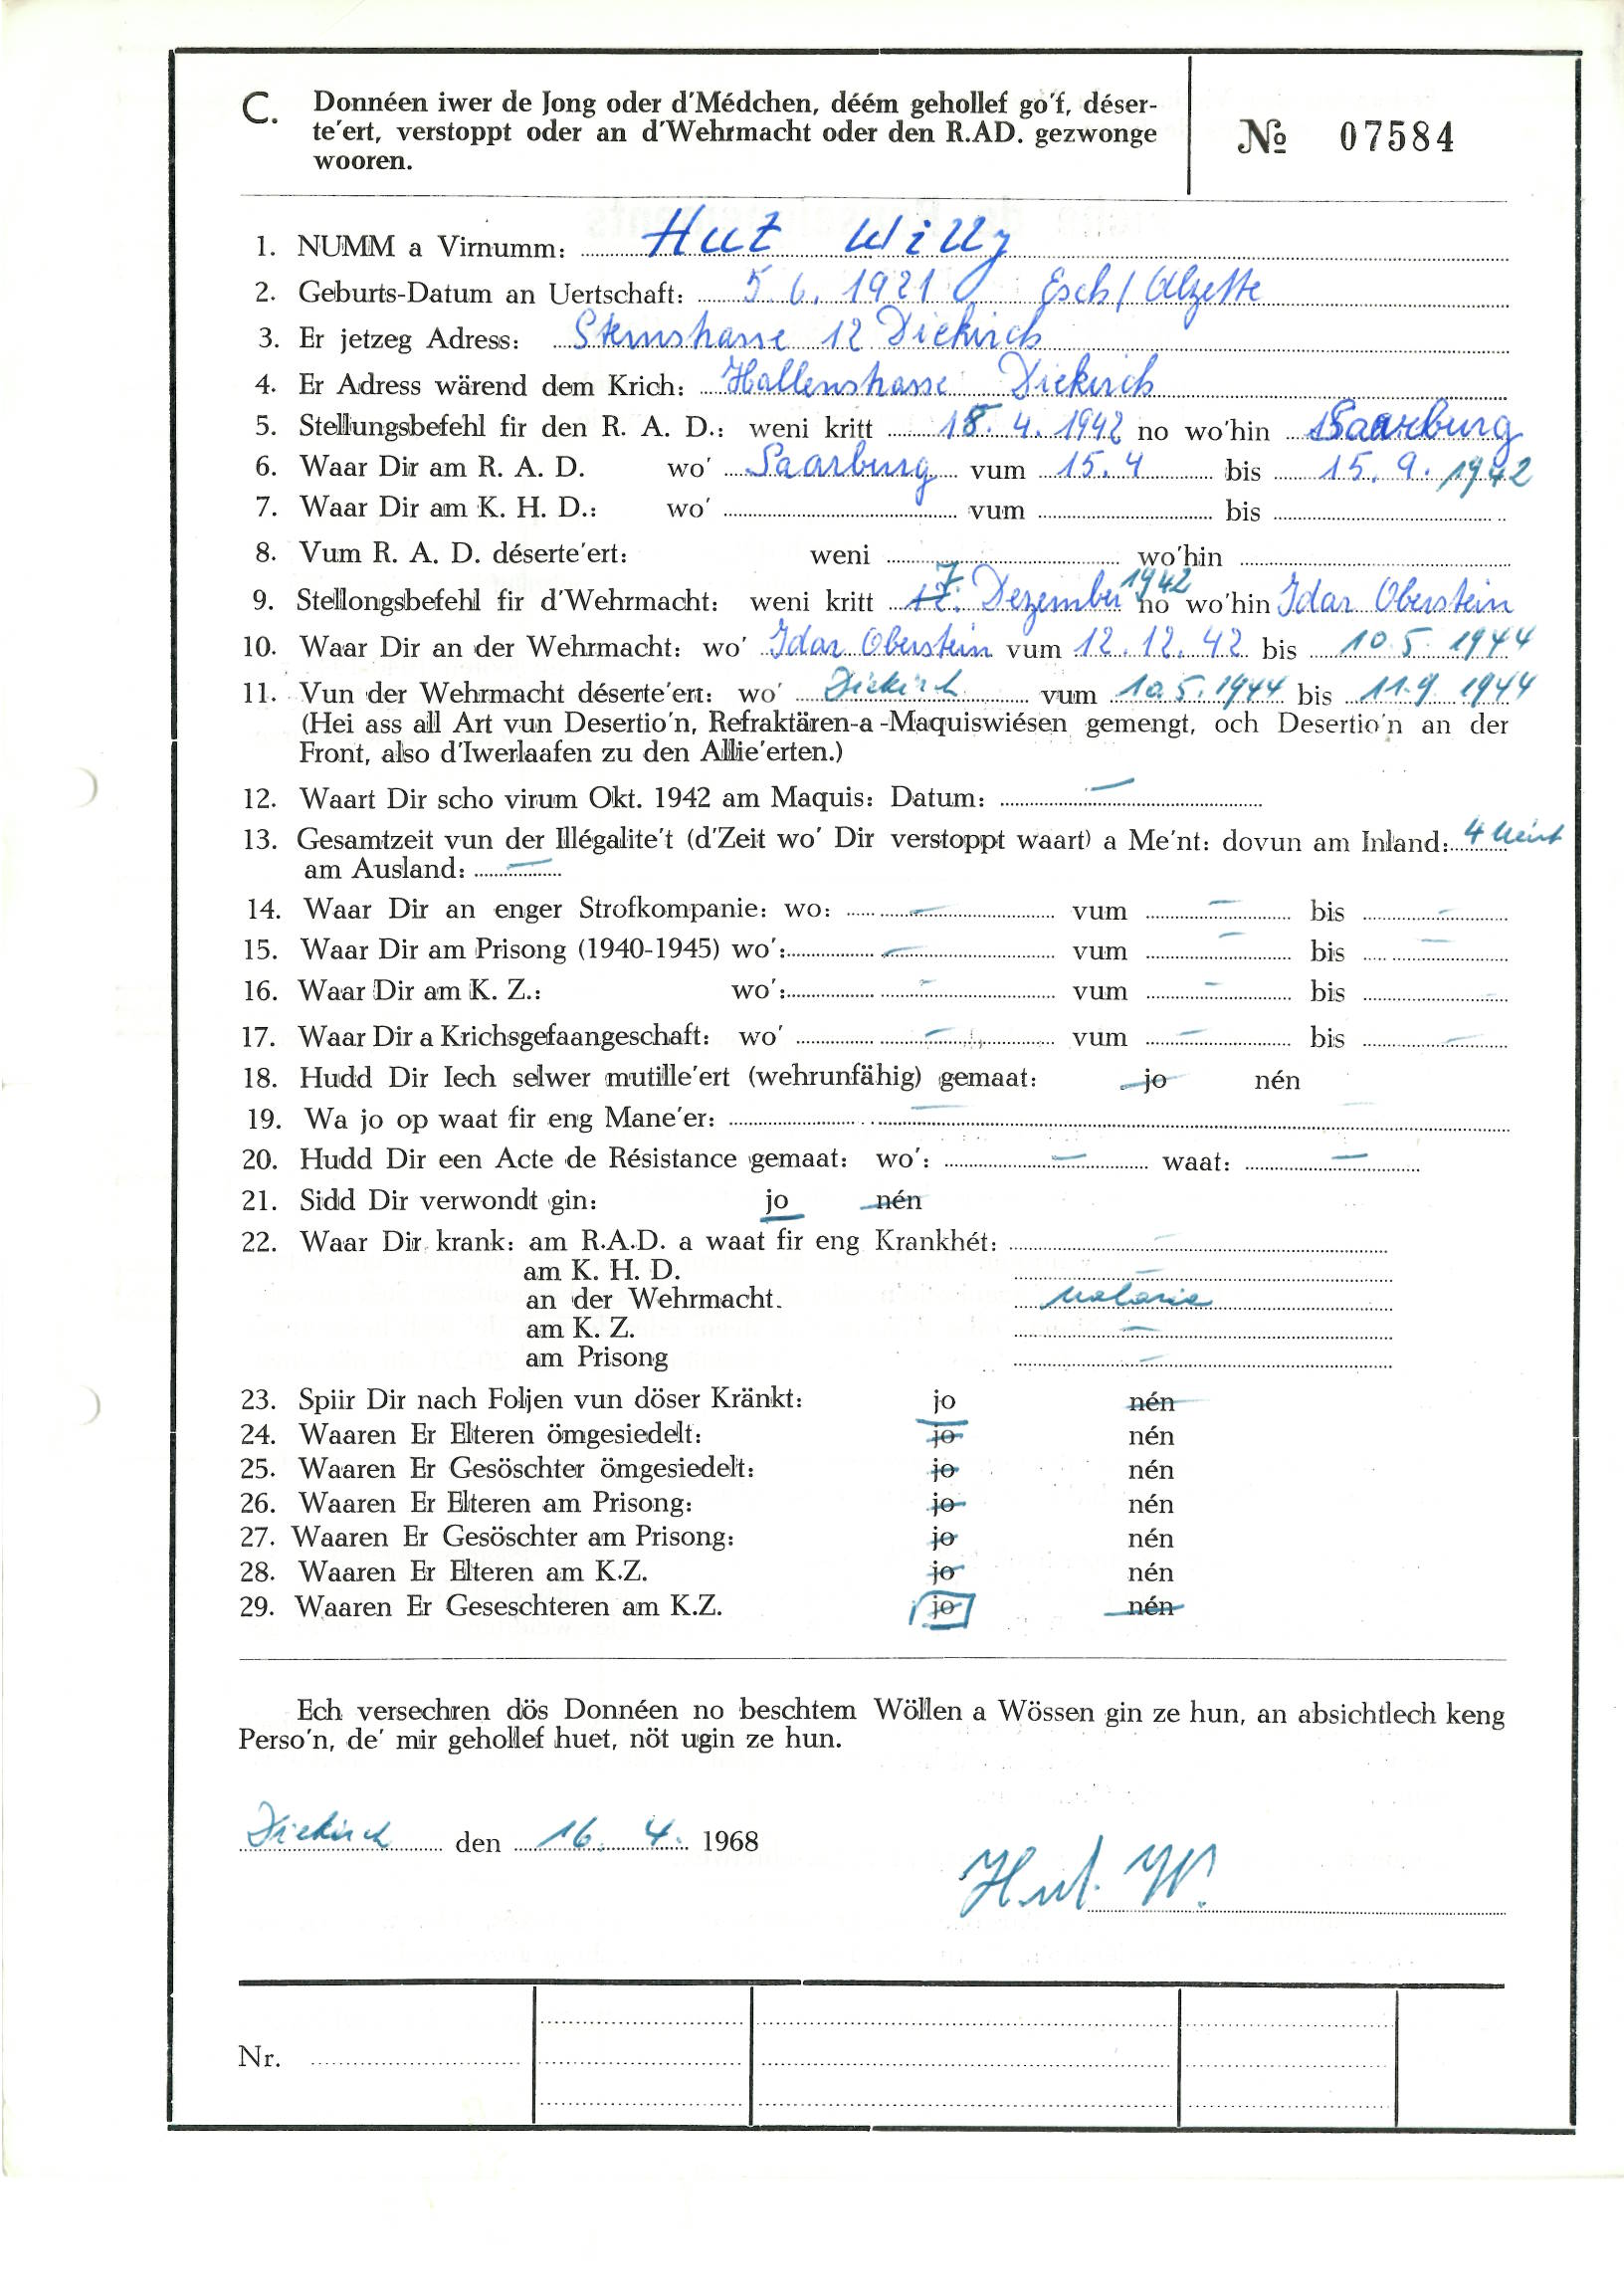 C. Donnéen iwer de Jong oder d'Médchen, déém gehollef go'f, déser-
te'ert, verstoppt oder an d'Wehrmacht oder den R.AD. gezwonge
wooren.
№ 07584
1. NUMM a Virnumm: Hut Willy
2. Geburts-Datum an Uertschaft: 5.6.1921 Esch/Alzette
3. Er jetzeg Adress: Sternstrasse 12 Diekirch
4. Er Adress wärend dem Krich: Hallenstrasse Diekirch
5. Stellungsbefehl fir den R. A. D.: weni kritt 4. 1942 no wo'hin Saarburg
6. Waar Dir am R. A. D. wo' Saarburg vum 15.4 bis 15.9.1942
7. Waar Dir am K. H. D.: wo' vum bis
8. Vum R. A. D. déserte'ert: weni wo'hin
9. Stellongsbefehl fir d'Wehrmacht: weni kritt 7. Dezember 1942 no wo'hin Idar Oberstein
10. Waar Dir an der Wehrmacht: wo' Idar Oberstein vum 12.12.42 bis 10.5.1944
11. Vun der Wehrmacht déserte'ert: wo' Diekirch vum 10.5.1944 bis 11.9.1944
(Hei ass all Art vun Desertio'n, Refraktären-a-Maquiswiésen gemengt, och Desertio'n an der
Front, also d'Iwerlaafen zu den Allie'erten.)
12. Waart Dir scho virum Okt. 1942 am Maquis: Datum: —
13. Gesamtzeit vun der Illégalite't (d'Zeit wo' Dir verstoppt waart) a Me'nt: dovun am Inland: 4
am Ausland: —
14. Waar Dir an enger Strofkompanie: wo: — vum — bis —
15. Waar Dir am Prisong (1940-1945) wo': — vum — bis —
16. Waar Dir am K. Z.: wo': — vum — bis —
17. Waar Dir a Krichsgefaangeschaft: wo' — vum — bis —
18. Hudd Dir Iech selwer mutille'ert (wehrunfähig) gemaat: jo nén
19. Wa jo op waat fir eng Mane'er: —
20. Hudd Dir een Acte de Résistance gemaat: wo': — waat: —
21. Sidd Dir verwondt gin: jo nén
22. Waar Dir krank: am R.A.D. a waat fir eng Krankhét: —
am K. H. D. —
an der Wehrmacht. Malaria
am K. Z. —
am Prisong —
23. Spiir Dir nach Foljen vun döser Kränkt: jo nén
24. Waaren Er Elteren ömgesiedelt: jo nén
25. Waaren Er Gesöschter ömgesiedelt: jo nén
26. Waaren Er Elteren am Prisong: jo nén
27. Waaren Er Gesöschter am Prisong: jo nén
28. Waaren Er Elteren am K.Z. jo nén
29. Waaren Er Geseschteren am K.Z. jo nén
Ech versechren dös Donnéen no beschtem Wöllen a Wössen gin ze hun, an absichtlech keng
Perso'n, de' mir gehollef huet, nöt ugin ze hun.
Diekirch den 16. 4. 1968
Hut. W.
Nr.